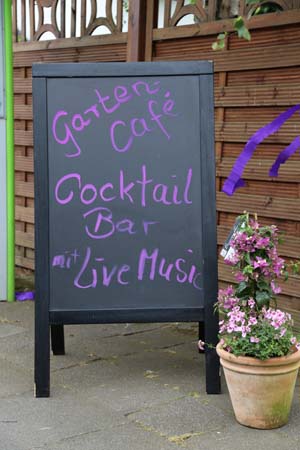 Garten-
Café
Cocktail
Bar
mit Live Music